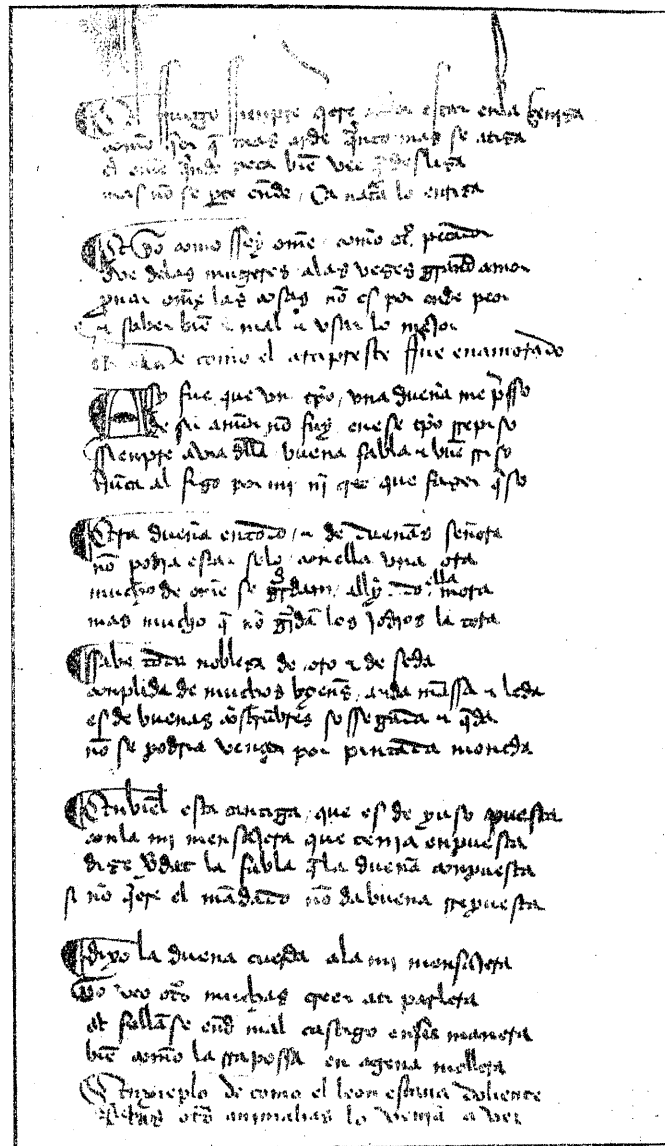 El fuego ssienpre qere estar en la çeniza
como qer q mas arde qnto mas se atiza
el ome qndo peca bie vee q desliza
mas no se pte ende Ca natura lo entiza
Et yo como ssey ome como ot pecador
ove delas mugeres alas vezes grand amor
provar ome las cosas no es por ende peor
e saber bien e mal e usar lo mejor
de como el arçipreste ffue enamorado
Assy fue que un tpo una dueña me prisso
de su amor no fuy en ese tpo rrepiso
ssienpre avia della buena fabla e buen rriso
nunca al fizo por mi ni creo que fazer qso
Era dueña en todo e de dueñas señora
no podia estar solo con ella una ora
mucho de ome se guardam ally do ella mora
mas mucho q no guardan los jodios la tora
ssabe toda nobleza de oro e de seda
conplida de muchos byenes anda manssa e leda
es de buenas costunbres sossegada e qda
no se podria vençer por pintada moneda
Enbiel esta cantiga que es de yuso puesta
con la mi mensajera que tenia enpuesta
dize verdat la fabla q la dueña conpuesta
si no qere el mandado no da buena rrepuesta
dixo la dueña cuerda ala mi mensajera
yo veo otras muchas creer ati parlera
et fallanse ende mal castigo en ssu manera
bien como la rraposa en agena mollera
Enxienplo de como el leon estava doliente
e las otras animalias lo venian a ver